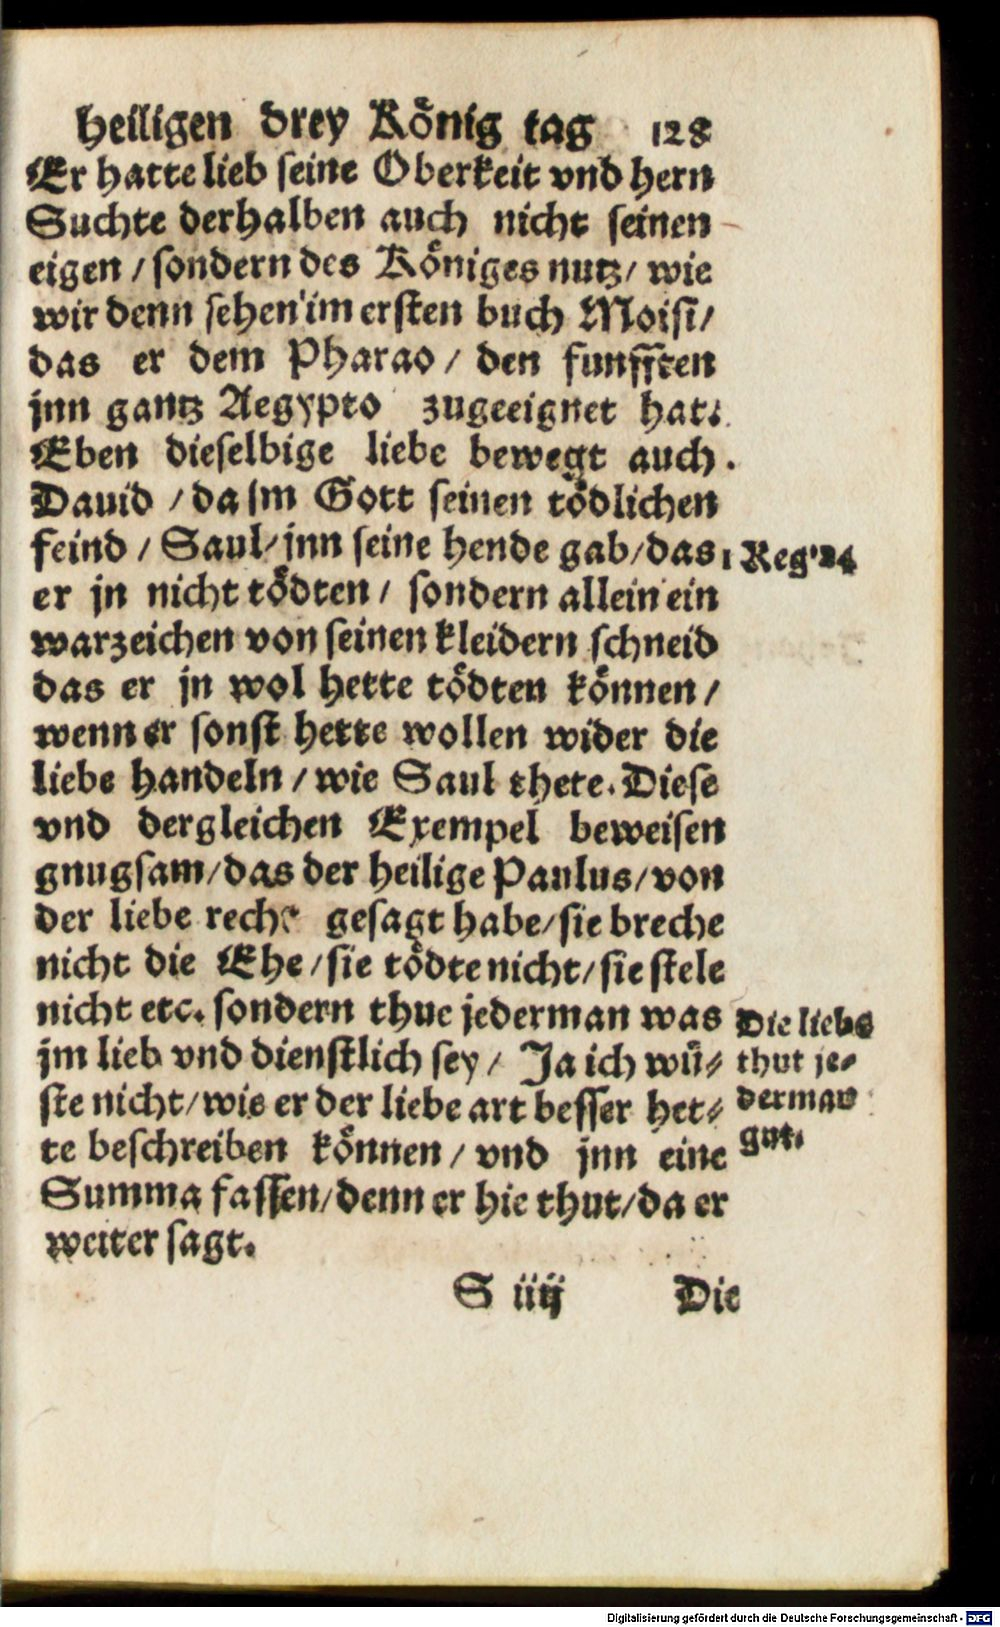 heiligen drey König tag 128
Er hatte lieb seine Oberkeit vnd hern
Suchte derhalben auch nicht seinen
eigen / sondern des Königes nutz / wie
wir denn sehen im ersten buch Moisi /
das er dem Pharao / den funfften
jnn gantz Aegypto zugeeignet hat.
Eben dieselbige liebe bewegt auch
Dauid / da jm Gott seinen tödlichen
feind / Saul / jnn seine hende gab / das
1 Reg. 24
er jn nicht tödten / sondern allein ein
warzeichen von seinen kleidern schneid
das er jn wol hette tödten können /
wenn er sonst hette wollen wider die
liebe handeln / wie Saul thete. Diese
vnd dergleichen Exempel beweisen
gnugsam / das der heilige Paulus / von
der liebe recht gesagt habe / sie breche
nicht die Ehe / sie tödte nicht / sie stele
nicht etc. sondern thue jederman was
jm lieb vnd dienstlich sey / Ja ich wü⸗
ste nicht / wie er der liebe art besser het⸗
te beschreiben können / vnd jnn eine
Summa fassen / denn er hie thut / da er
weiter sagt.
Die liebe
thut je⸗
derman
gut.
S iiij Die
Digitalisierung gefördert durch die Deutsche Forschungsgemeinschaft - DFG